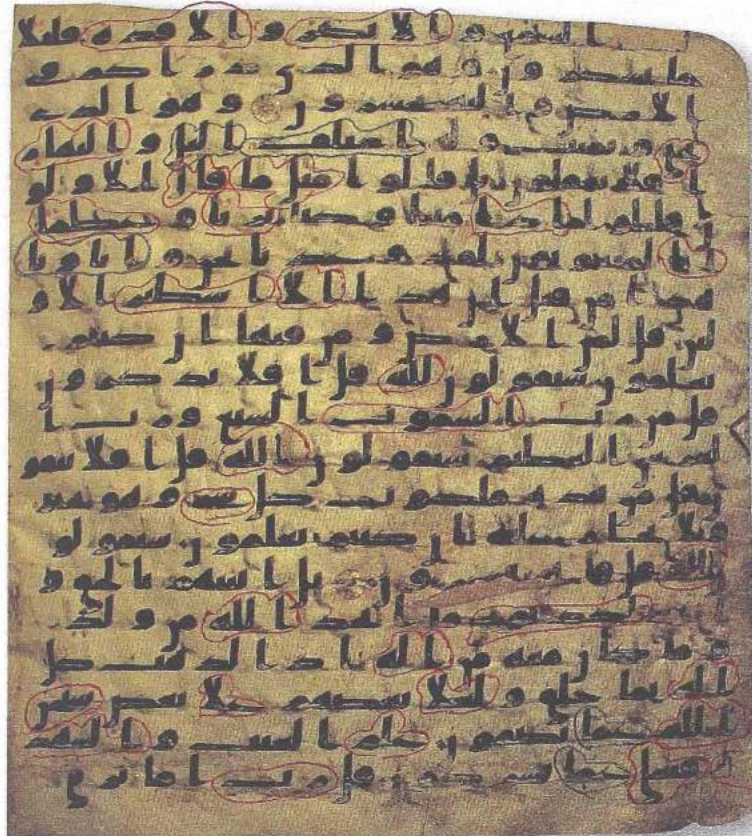 السمع و الابصر و الافده قليلا
ما تشكرون وهو الذي ذراكم في
الارض و اليه تحشرون وهو الذي
يحي و يميت و له اختلف اليل و النهار
افلا تعقلون بل قالوا مثل ما قال الاولو
ن قالوا اذا متنا و كنا تربا و عظما
انا لمبعوثون لقد وعدنا نحن و اباونا
هذا من قبل ان هذا الا اسطير الاو
لين قل لمن الارض و من فيها ان كنتم
تعلمون سيقولون لله قل افلا تذكرون
قل من رب السموت السبع و رب ا
لعرش العظيم سيقولون الله قل افلا تتقو
ن قل من بيده ملكوت كل شي و هو يجير
ولا يجار عليه ان كنتم تعلمون سيقولو
ن لله قل فانى تسحرون بل اتينهم بالحق و
انهم لكذبون ما اتخذ الله من ولد
و ما كان معه من اله اذا لذهب كل
اله بما خلق و لعلا بعضهم علا بعض سبحن
الله عما يصفون علم الغيب و الشهد
ة فتعلى عما يشركون قل رب اما تريني